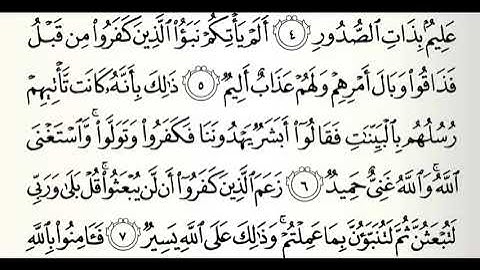 عَلِيمُۢ بِذَاتِ ٱلصُّدُورِ ٤ أَلَمْ يَأْتِكُمْ نَبَؤُا۟ ٱلَّذِينَ كَفَرُوا۟ مِن قَبْلُ
فَذَاقُوا۟ وَبَالَ أَمْرِهِمْ وَلَهُمْ عَذَابٌ أَلِيمٌ ٥ ذَٰلِكَ بِأَنَّهُۥ كَانَت تَّأْتِيهِمْ
رُسُلُهُم بِٱلْبَيِّنَٰتِ فَقَالُوٓا۟ أَبَشَرٌ يَهْدُونَنَا فَكَفَرُوا۟ وَتَوَلَّوا۟ ۚ وَّٱسْتَغْنَى
ٱللَّهُ ۚ وَٱللَّهُ غَنِىٌّ حَمِيدٌ ٦ زَعَمَ ٱلَّذِينَ كَفَرُوٓا۟ أَن لَّن يُبْعَثُوا۟ ۚ قُلْ بَلَىٰ وَرَبِّى
لَتُبْعَثُنَّ ثُمَّ لَتُنَبَّؤُنَّ بِمَا عَمِلْتُمْ ۚ وَذَٰلِكَ عَلَى ٱللَّهِ يَسِيرٌ ٧ فَـَٔامِنُوا۟ بِٱللَّهِ